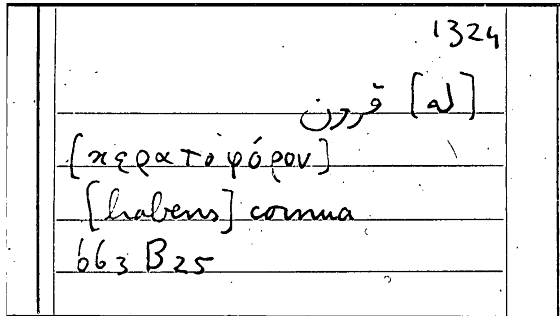 1324
[له] قرون
[κερατοφόρον]
[habens] cornua
663 B 25